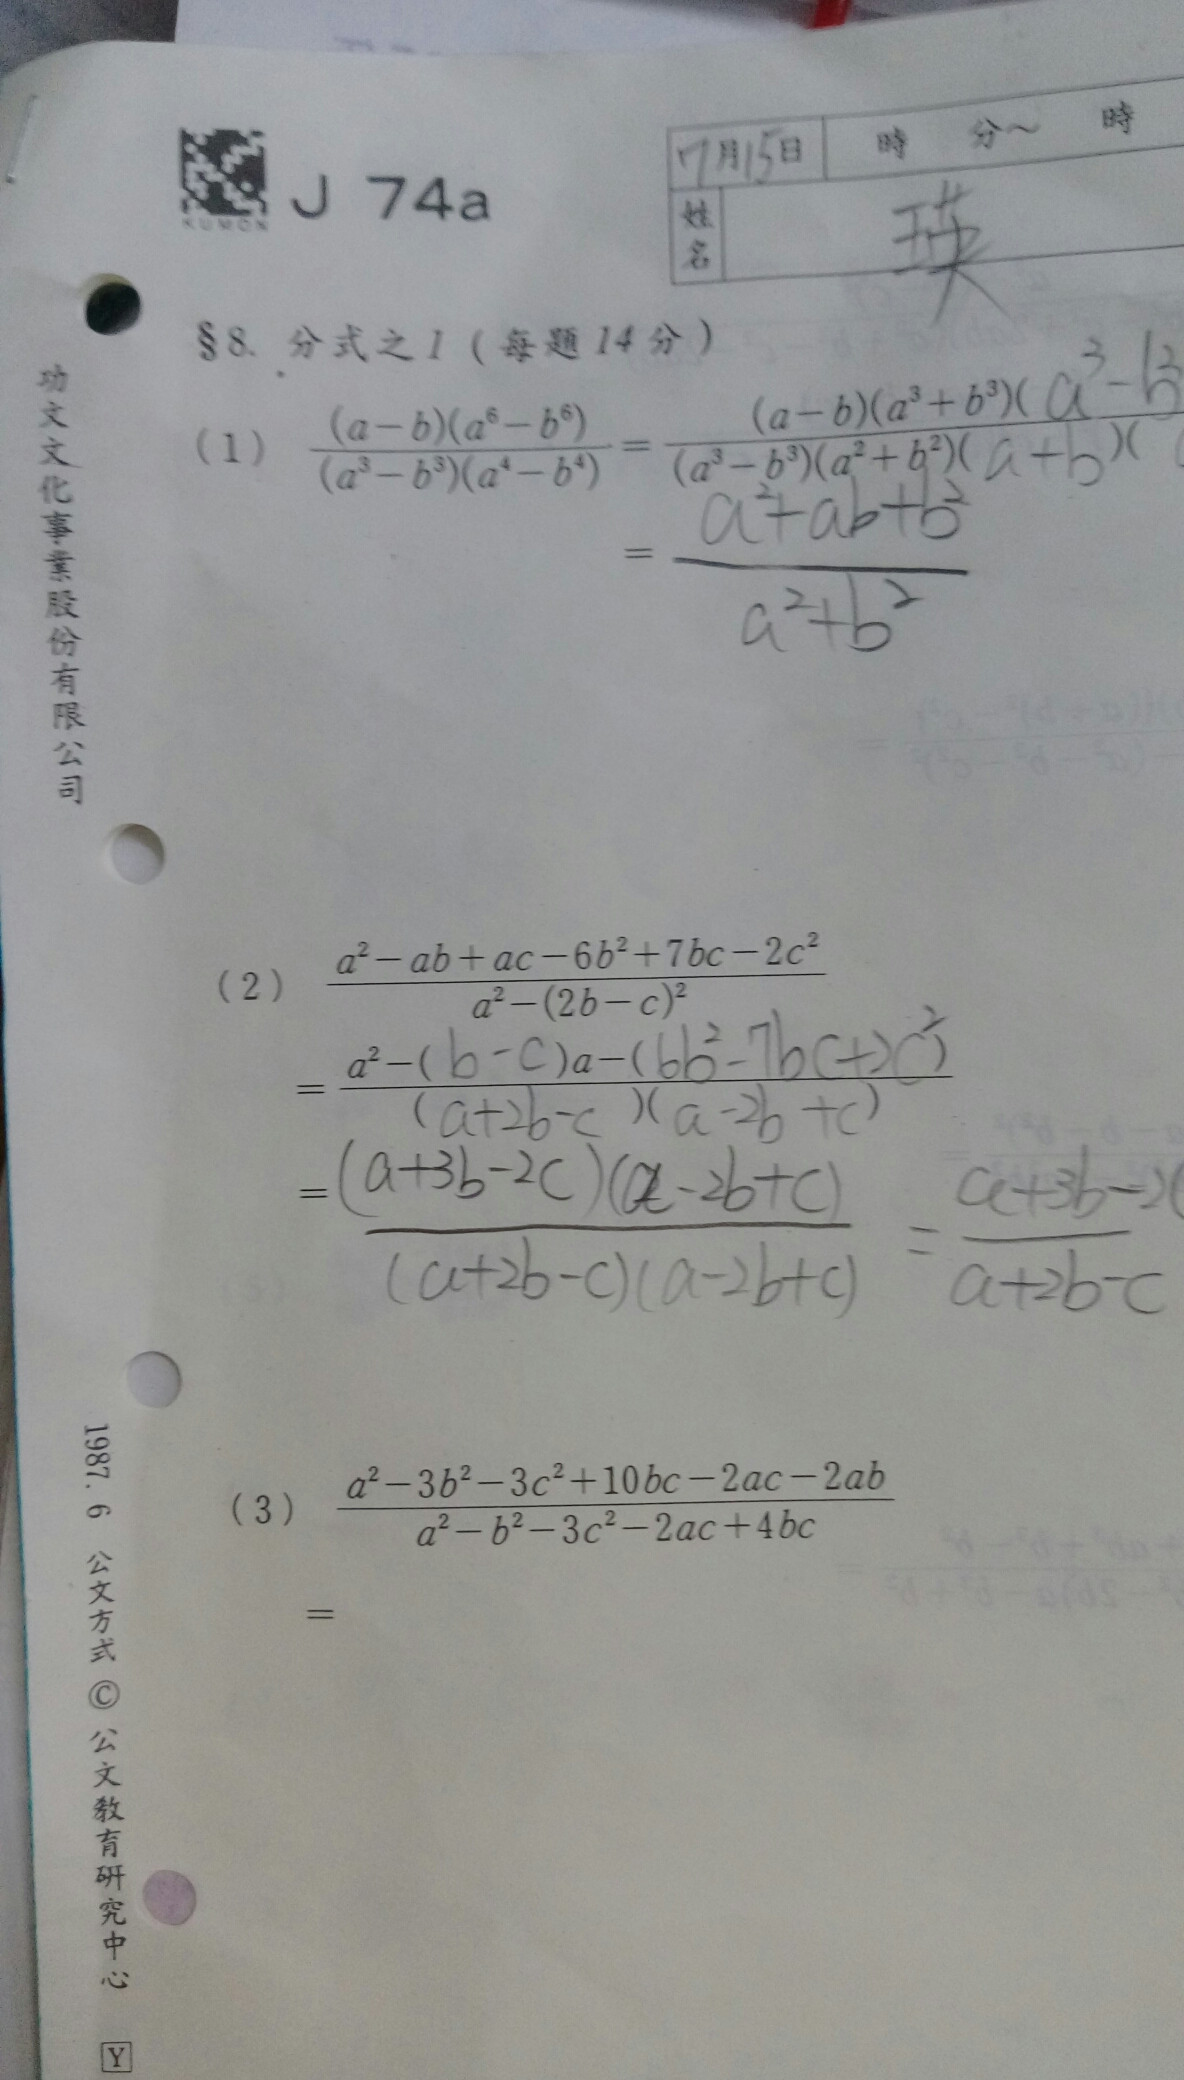 KUMON
J 74a
7月15日 時 分~ 時
姓名 瑛
§8. 分式之1(每題14分)
(1) (a-b)(a⁶-b⁶) / (a³-b³)(a⁴-b⁴) = (a-b)(a³+b³)(a³-b³ / (a³-b³)(a²+b²)(a+b)(
= a²+ab+b² / a²+b²
(2) a²-ab+ac-6b²+7bc-2c² / a²-(2b-c)²
= a²-(b-c)a-(6b²-7bc+2c²) / (a+2b-c)(a-2b+c)
= (a+3b-2c)(a-2b+c) / (a+2b-c)(a-2b+c) = a+3b-2c / a+2b-c
(3) a²-3b²-3c²+10bc-2ac-2ab / a²-b²-3c²-2ac+4bc
=
功文文化事業股份有限公司
1987.6 公文方式 © 公文教育研究中心 Y